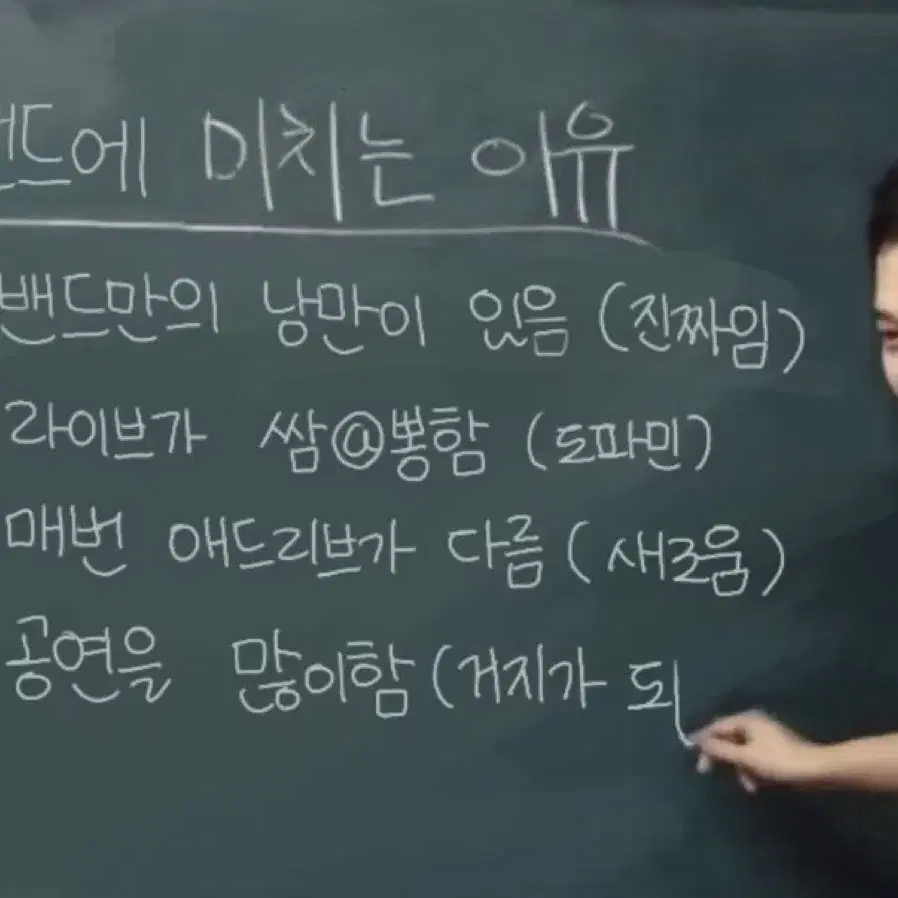 밴드에 미치는 이유
밴드만의 낭만이 있음 (진짜임)
라이브가 쌈@뽕함 (도파민)
매번 애드리브가 다름 (새로움)
공연을 많이함 (거지가 되